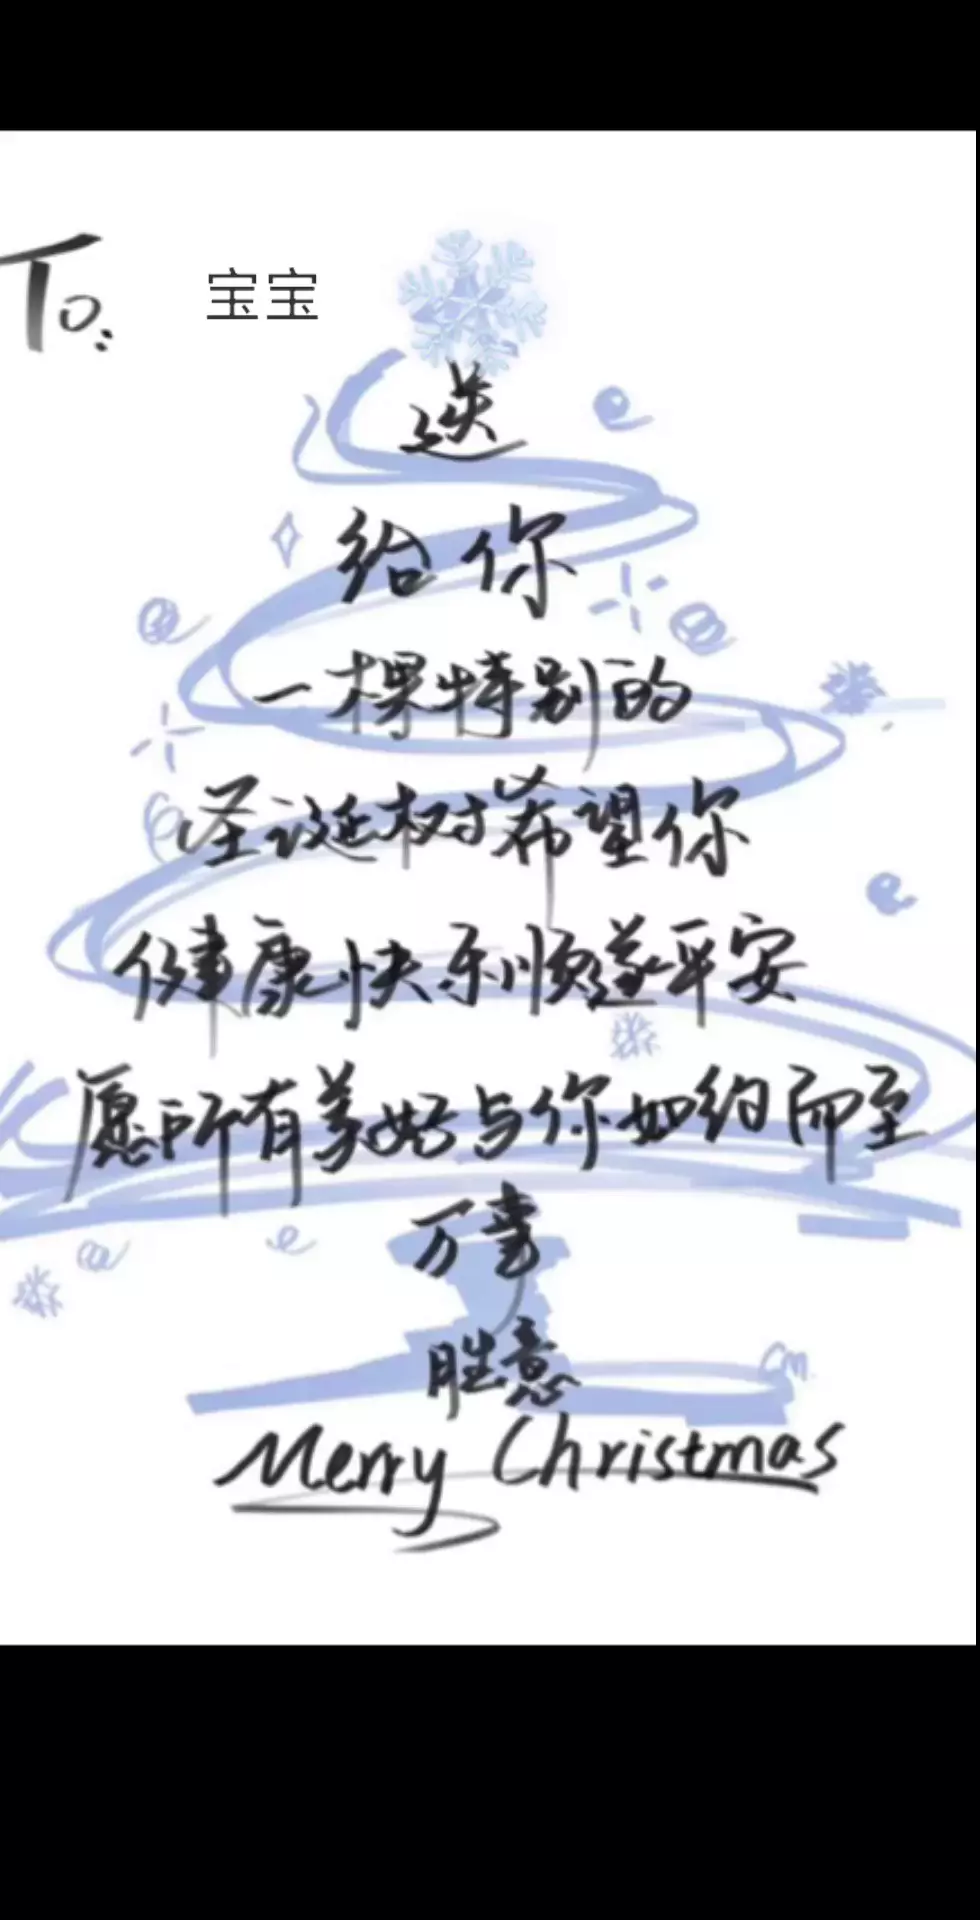 To: 宝宝
送
给你
一棵特别的
圣诞树希望你
健康快乐顺遂平安
愿所有美好与你如约而至
万事
胜意
Merry Christmas